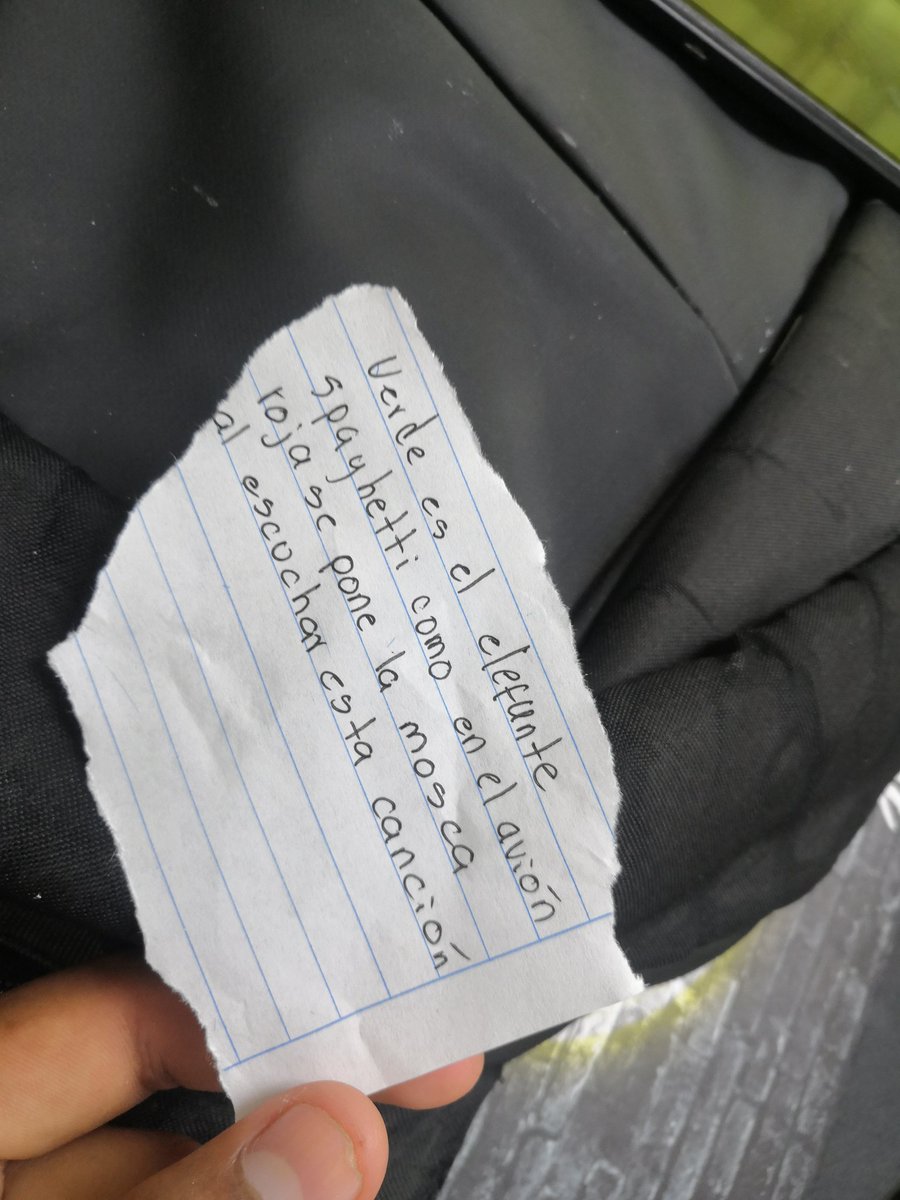 Verde es el elefante
spaghetti como en el avión
roja se pone la mosca
al escuchar esta canción